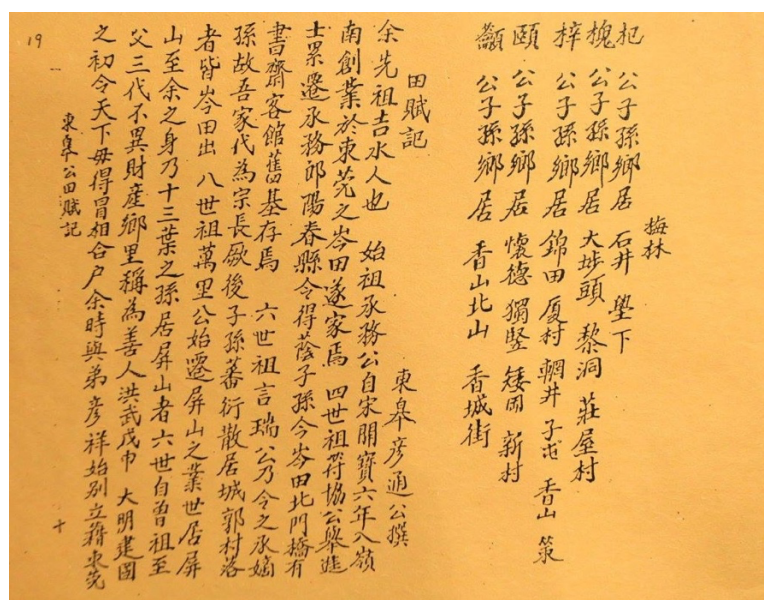 梅林
杞 公子孫鄉居 石井 壆下
槐 公子孫鄉居 大埗頭 黎洞 莊屋村
梓 公子孫鄉居 錦田 厦村 輞井 子屯 香山
頤 公子孫鄉居 懷德 獨竪 矮岡 新村
顯 公子孫鄉居 香山北山 香城街
田賦記
東皋彥通公撰
余先祖吉水人也 始祖承務公自宋開寶六年入嶺
南創業於東莞之岑田遂家焉 四世祖符協公舉進
士累遷承務郎陽春縣令得蔭子孫今岑田北門橋有
書齋客館舊基存焉 六世祖言瑞公乃令之承嫡
孫故吾家代為宗長厥後子孫蕃衍散居城郭村落
者皆岑田出 八世祖萬里公始遷屏山之業世居屏
山至余之身乃十三葉之孫居屏山者六世自曾祖至
父三代不異財產鄉里稱為善人洪武戊申 大明建國
之初令天下毋得冒相合户余時與弟彥祥始別立籍東莞
東皋公田賦記
十
19